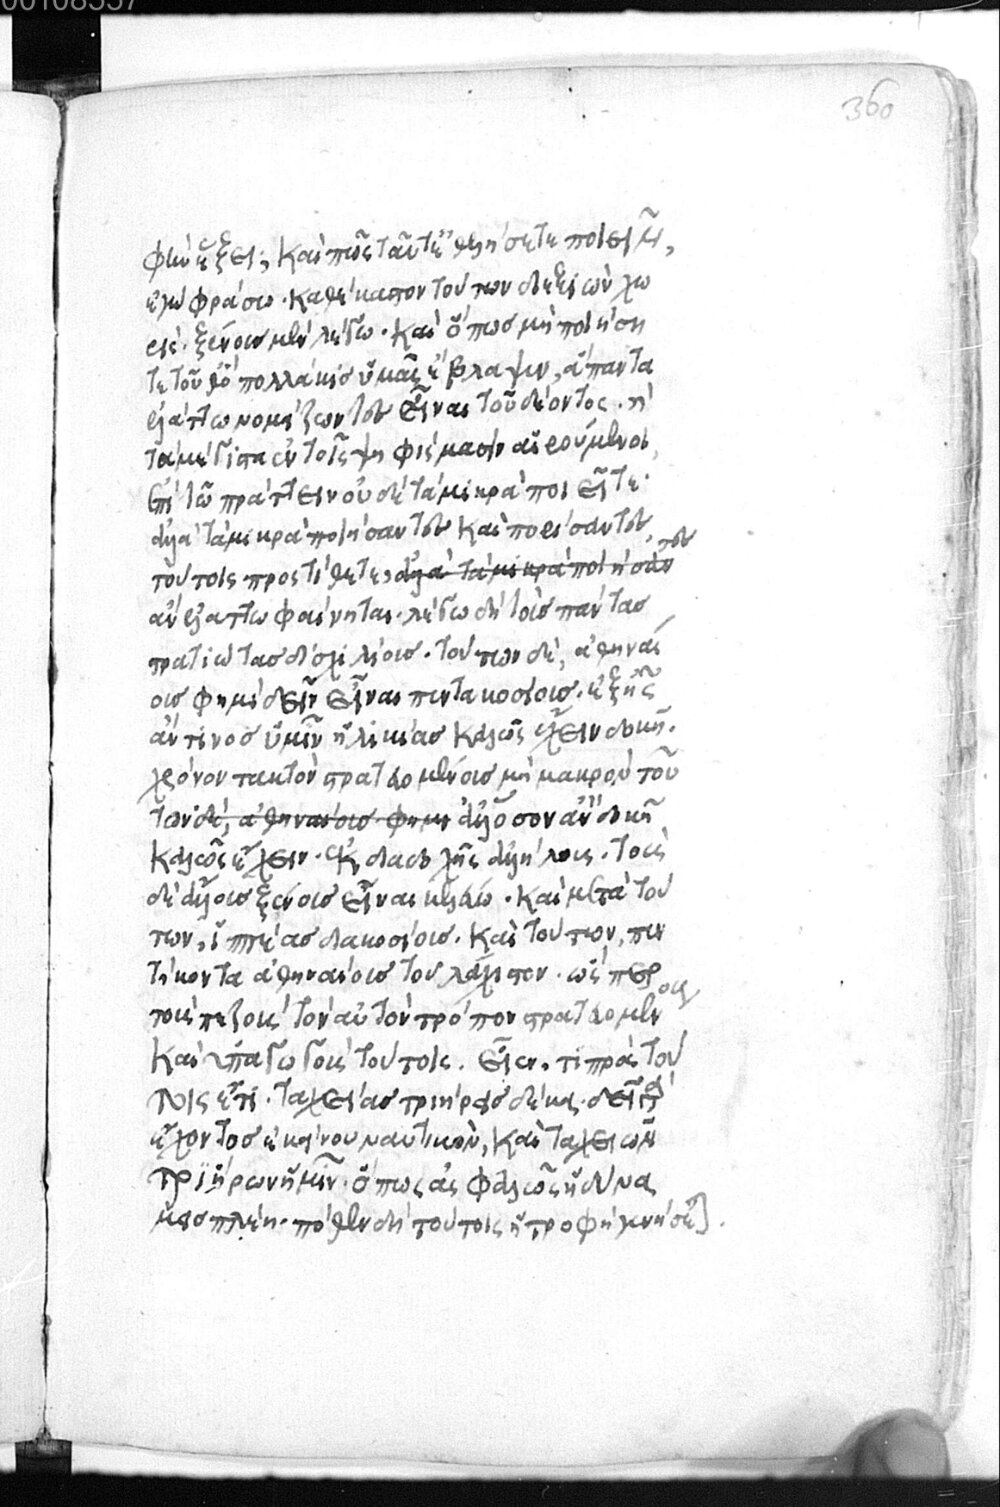 00108337
360
φὴν ἕξει; καὶ πῶς ταῦτ' ἐθελήσετε ποιεῖν,
ἐγὼ φράσω. καθ' ἕκαστον τούτων διεξιὼν χω
ρίς. ξένους μὲν λέγω. καὶ ὅπως μὴ ποιήση
τε τοῦθ' ὃ πολλάκις ὑμᾶς ἔβλαψεν, ἅπαντα
ἐλάττω νομίζοντες εἶναι τοῦ δέοντος. καὶ
τὰ μέγιστα ἐν τοῖς ψηφίσμασιν αἱρούμενοι,
ἐπὶ τῷ πράττειν οὐδὲ τὰ μικρὰ ποιεῖτε·
ἀλλὰ τὰ μικρὰ ποιήσαντες καὶ πορίσαντες,
τούτοις προστίθετε, ἀλλὰ τὰ μικρὰ ποιήσαντες
ἂν ἐλάττω φαίνηται. λέγω δὴ τοὺς πάντας
στρατιώτας δισχιλίους. τούτων δὲ, ἀθηναί
ους φημὶ δεῖν εἶναι πεντακοσίους. ἐξ ἧς
ἄν τινος ὑμῖν ἡλικίας καλῶς ἔχειν δοκῇ.
χρόνον τακτὸν στρατευομένους μὴ μακρὸν τοῦ
τον δὲ, ἀθηναίους φημὶ ἀλλ' ὅσον ἂν δοκῇ
καλῶς ἔχειν. ἐκ διαδοχῆς ἀλλήλοις. τοὺς
δὲ ἄλλους ξένους εἶναι κελεύω. καὶ μετὰ τού
των, ἱππέας διακοσίους. καὶ τούτων, πεν
τήκοντα ἀθηναίους τοὐλάχιστον. ὥσπερ
τοὺς πεζοὺς τὸν αὐτὸν τρόπον στρατευομένους
καὶ ἱππαγωγοὺς τούτοις. εἶεν. τί πρὸς τού
τοις ἔτι. ταχείας τριήρεις δέκα. δεῖ γὰρ
ἔχοντος ἐκείνου ναυτικὸν, καὶ ταχειῶν
τριήρων ἡμῖν. ὅπως ἀσφαλῶς ἡ δύνα
μις πλέῃ. πόθεν δὴ τούτοις ἡ τροφὴ γενήσεται.